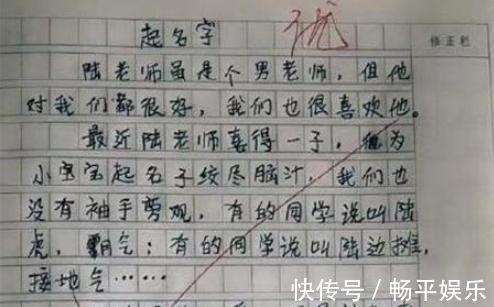 起名字
修正栏
陆老师虽是个男老师,但他
对我们都很好,我们也很喜欢他。
最近陆老师喜得一子,他为
小宝宝起名子绞尽脑汁,我们也
没有袖手旁观,有的同学说叫陆
虎,霸气;有的同学说叫陆边摊,
接地气……
快传号/畅平娱乐